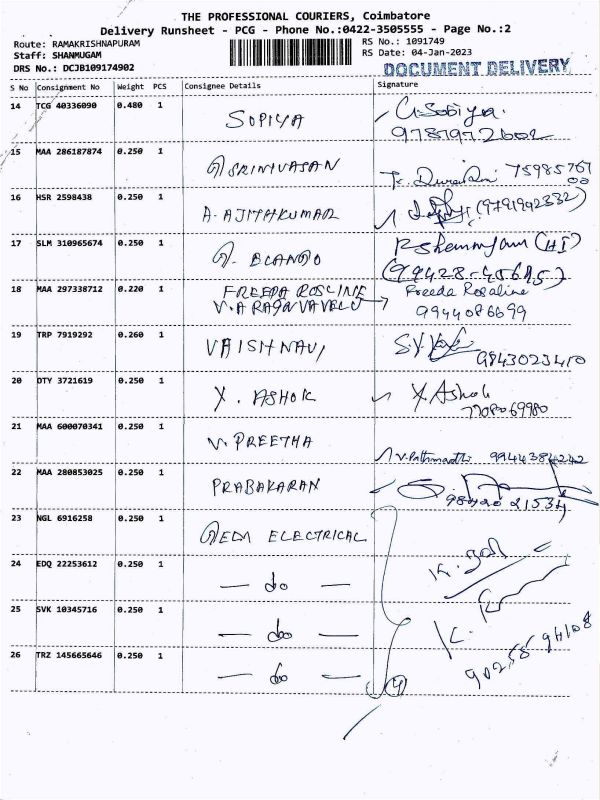 THE PROFESSIONAL COURIERS, Coimbatore
Delivery Runsheet - PCG - Phone No.:0422-3505555 - Page No.:2
Route: RAMAKRISHNAPURAM RS No.: 1091749
Staff: SHANMUGAM RS Date: 04-Jan-2023
DRS No.: DCJB109174902 DOCUMENT DELIVERY
S No Consignment No Weight PCS Consignee Details Signature
14 TCG 40336090 0.480 1 SOPIYA G. Sobiya
9787972602
15 MAA 286187874 0.250 1 SRINIVASAN
16 HSR 2598438 0.250 1 A. AJITHKUMAR (9791942332)
17 SLM 310965674 0.250 1
18 MAA 297338712 0.220 1 FREEDA ROSLINE Freeda Rosaline
9944086699
19 TRP 7919292 0.260 1 VAISHNAVI 9843023410
20 DTY 3721619 0.250 1 Y. ASHOK Y Ashok
7708069980
21 MAA 600070341 0.250 1 V. PREETHA
V. Pathmadhi 9944384242
22 MAA 280853025 0.250 1 PRABAKARAN
9842021534
23 NGL 6916258 0.250 1 ELECTRICAL
24 EDQ 22253612 0.250 1 — do —
25 SVK 10345716 0.250 1 — do —
26 TRZ 145665646 0.250 1 — do —
4